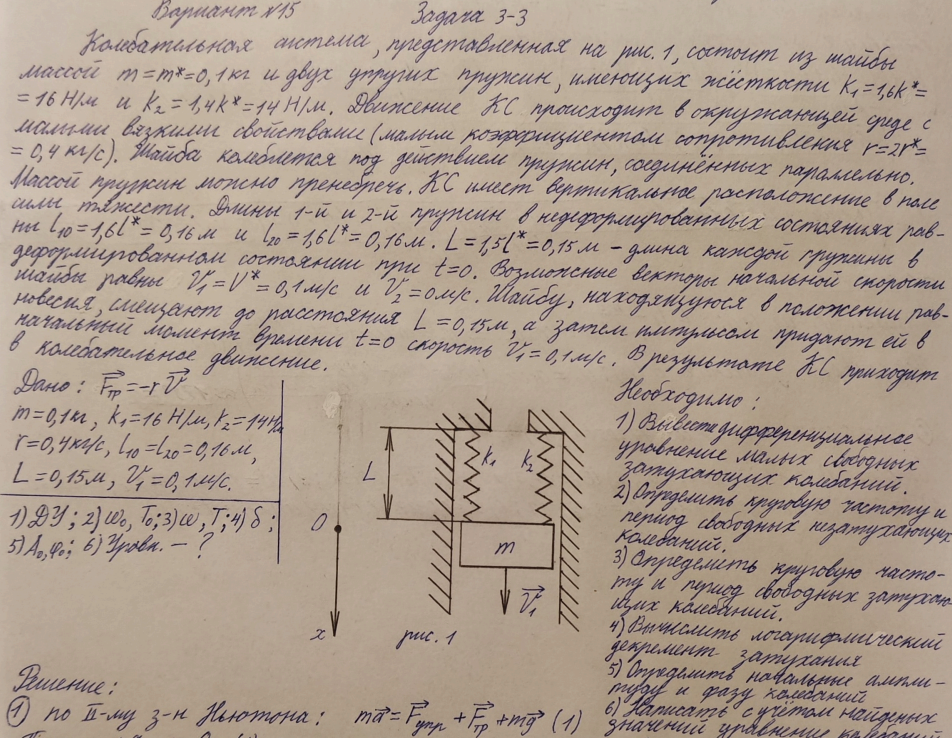 Вариант №15 Задача 3-3
Колебательная система, представленная на рис. 1, состоит из шайбы
массой m=m*=0,1кг и двух упругих пружин, имеющих жёсткости k₁=1,6k*=
=16 Н/м и k₂=1,4k*=14 Н/м. Движение КС происходит в окружающей среде с
малыми вязкими свойствами (малым коэффициентом сопротивления r=2r*=
=0,4 кг/с). Шайба колеблется под действием пружин, соединённых параллельно.
Массой пружин можно пренебречь. КС имеет вертикальное расположение в поле
силы тяжести. Длины 1-й и 2-й пружин в недеформированных состояниях рав-
ны l₁₀=1,6l*=0,16м и l₂₀=1,6l*=0,16м. L=1,5l*=0,15м – длина каждой пружины в
деформированном состоянии при t=0. Возможные векторы начальной скорости
шайбы равны V₁=V*=0,1м/с и V₂=0м/с. Шайбу, находящуюся в положении рав-
новесия, смещают до расстояния L=0,15м, а затем импульсом придают ей в
начальный момент времени t=0 скорость V₁=0,1м/с. В результате КС приходит
в колебательное движение.
Дано: F⃗тр=-rV⃗
m=0,1кг, k₁=16 Н/м, k₂=14Н/м
r=0,4кг/с, l₁₀=l₂₀=0,16м,
L=0,15м, V₁=0,1м/с.
1) ДУ; 2) ω₀, T₀; 3) ω, T; 4) δ;
5) A₀, φ₀; 6) Уравн. – ?
0
x
L
k₁
k₂
m
V⃗₁
рис. 1
Необходимо:
1) Вывести дифференциальное
уравнение малых свободных
затухающих колебаний.
2) Определить круговую частоту и
период свободных незатухающих
колебаний.
3) Определить круговую часто-
ту и период свободных затухаю-
щих колебаний.
4) Вычислить логарифмический
декремент затухания
5) Определить начальные ампли-
туду и фазу колебаний
6) Написать с учётом найденых
значений уравнение колебаний
Решение:
① по II-му з-н Ньютона: ma⃗=F⃗упр+F⃗тр+mg⃗ (1)